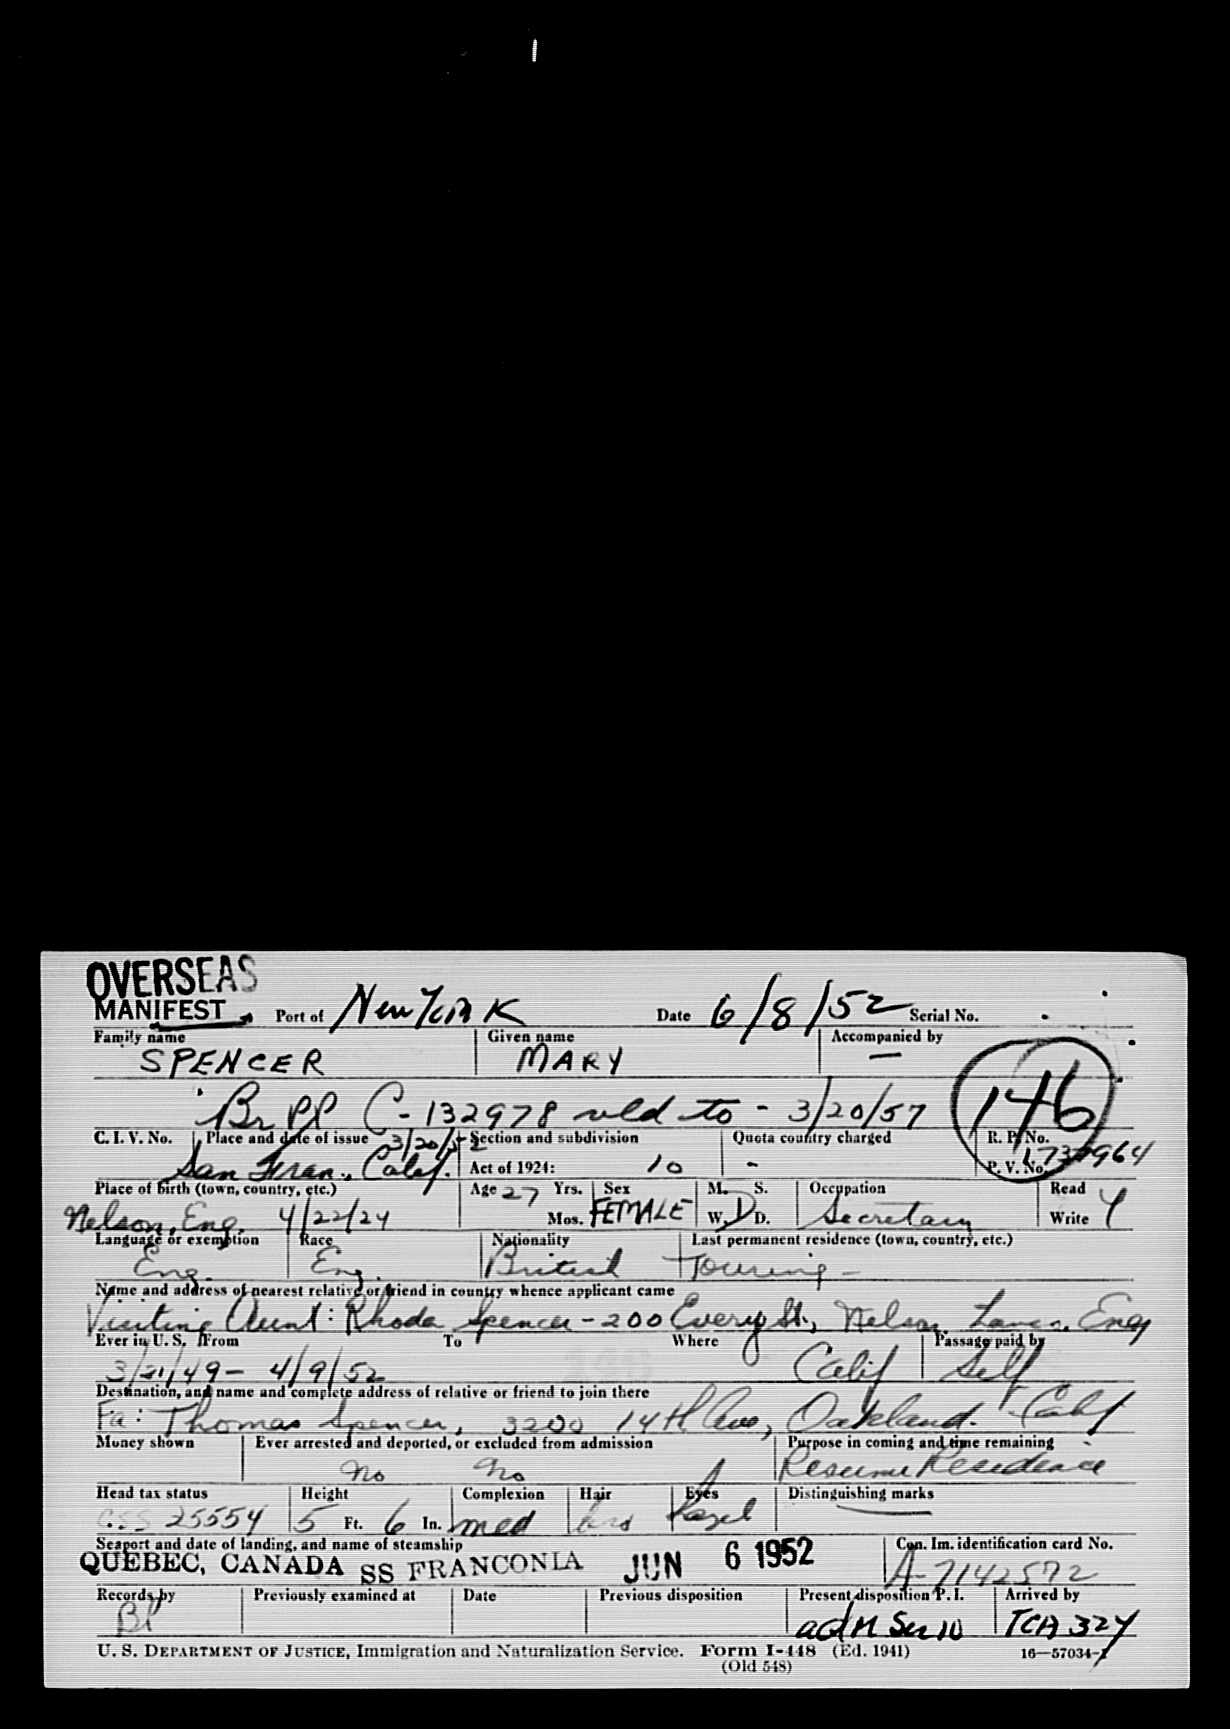 OVERSEAS
MANIFEST Port of New York Date 6/8/52 Serial No.
Family name Given name Accompanied by
SPENCER MARY —
Br PP C-132978 vld to - 3/20/57 146
C. I. V. No. Place and date of issue 3/20/52 Section and subdivision Quota country charged R. P. No.
San Fran., Calif. Act of 1924: 10 - P. V. No.
Place of birth (town, country, etc.) Age 27 Yrs. Sex M. S. Occupation Read Y
Nelson, Eng. 4/22/24 Mos. FEMALE W. D. Secretary Write
Language or exemption Race Nationality Last permanent residence (town, country, etc.)
Eng. Eng. British Touring -
Name and address of nearest relative or friend in country whence applicant came
Visiting Aunt: Rhoda Spencer - 200 Every St., Nelson, Lancs. Eng
Ever in U. S. From To Where Passage paid by
3/21/49 - 4/9/52 Calif Self
Destination, and name and complete address of relative or friend to join there
Fa: Thomas Spencer, 3200 14th Ave, Oakland. Calif
Money shown Ever arrested and deported, or excluded from admission Purpose in coming and time remaining
No No Resume Residence
Head tax status Height Complexion Hair Eyes Distinguishing marks
25554 5 Ft. 6 In. med Hazel —
Seaport and date of landing, and name of steamship Can. Im. identification card No.
QUEBEC, CANADA SS FRANCONIA JUN 6 1952 A-7142572
Records by Previously examined at Date Previous disposition Present disposition P. I. Arrived by
adm Sec 10 TCA 324
U. S. DEPARTMENT OF JUSTICE, Immigration and Naturalization Service. Form I-448 (Ed. 1941) 16—57034-1
(Old 548)